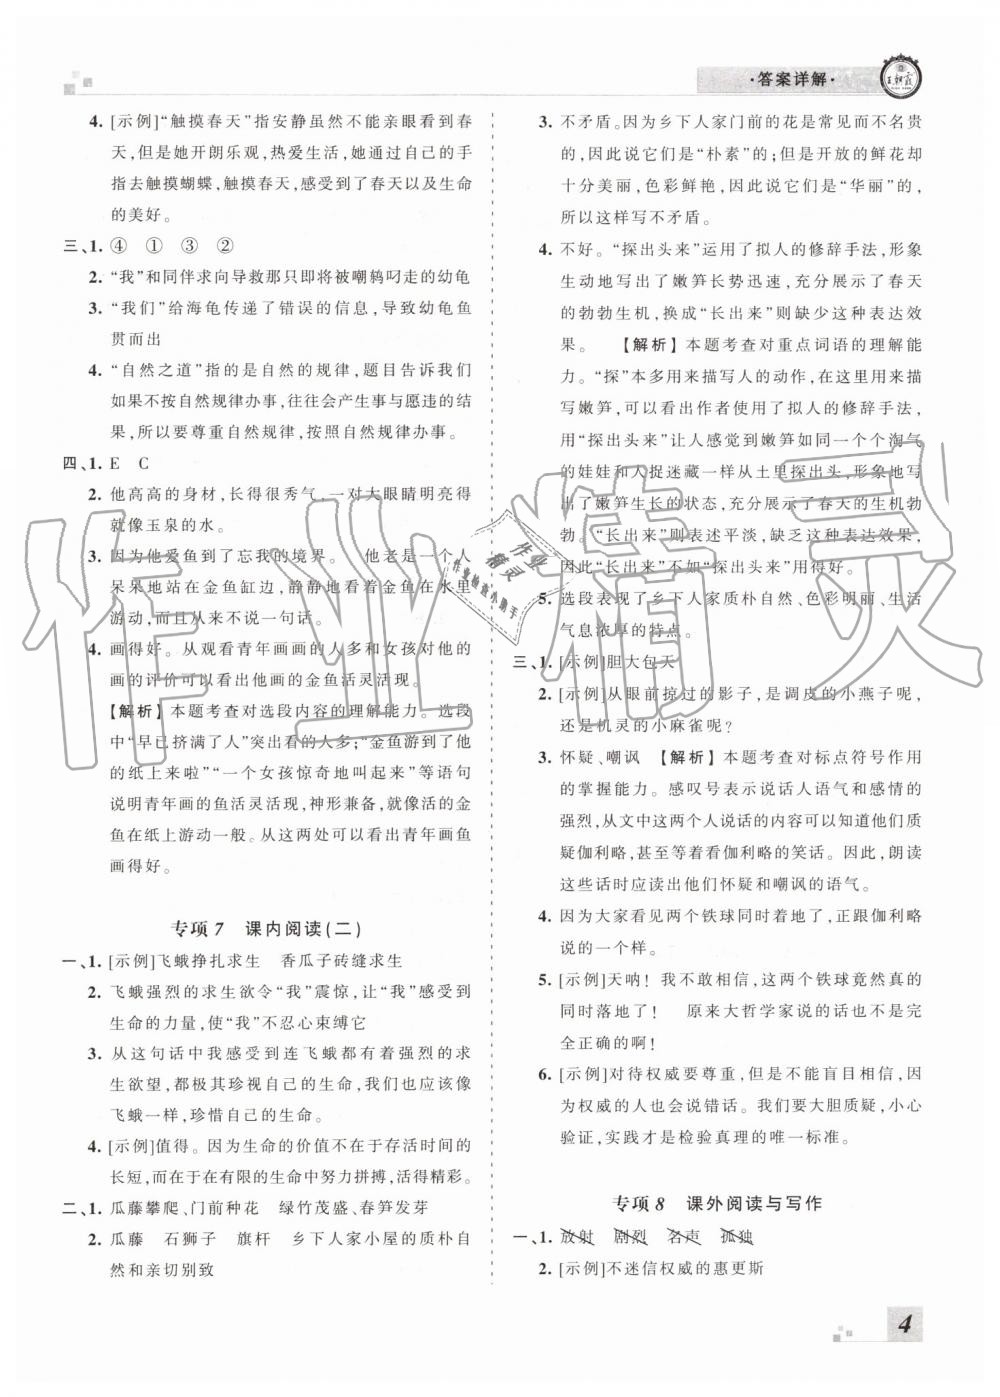 ·答案详解·
王朝霞
4. [示例]“触摸春天”指安静虽然不能亲眼看到春
天,但是她开朗乐观,热爱生活,她通过自己的手
指去触摸蝴蝶,触摸春天,感受到了春天以及生命
的美好。
三、1. ④ ① ③ ②
2. “我”和同伴求向导救那只即将被嘲鸫叼走的幼龟
3. “我们”给海龟传递了错误的信息,导致幼龟鱼
贯而出
4. “自然之道”指的是自然的规律,题目告诉我们
如果不按自然规律办事,往往会产生事与愿违的结
果,所以要尊重自然规律,按照自然规律办事。
四、1. E C
2. 他高高的身材,长得很秀气,一对大眼睛明亮得
就像玉泉的水。
3. 因为他爱鱼到了忘我的境界。 他老是一个人
呆呆地站在金鱼缸边,静静地看着金鱼在水里
游动,而且从来不说一句话。
4. 画得好。从观看青年画画的人多和女孩对他的
画的评价可以看出他画的金鱼活灵活现。
【解析】本题考查对选段内容的理解能力。选段
中“早已挤满了人”突出看的人多;“金鱼游到了他
的纸上来啦”“一个女孩惊奇地叫起来”等语句
说明青年画的鱼活灵活现,神形兼备,就像活的金
鱼在纸上游动一般。从这两处可以看出青年画鱼
画得好。
专项7 课内阅读(二)
一、1. [示例]飞蛾挣扎求生 香瓜子砖缝求生
2. 飞蛾强烈的求生欲令“我”震惊,让“我”感受到
生命的力量,使“我”不忍心束缚它
3. 从这句话中我感受到连飞蛾都有着强烈的求
生欲望,都极其珍视自己的生命,我们也应该像
飞蛾一样,珍惜自己的生命。
4. [示例]值得。因为生命的价值不在于存活时间的
长短,而在于在有限的生命中努力拼搏,活得精彩。
二、1. 瓜藤攀爬、门前种花 绿竹茂盛、春笋发芽
2. 瓜藤 石狮子 旗杆 乡下人家小屋的质朴自
然和亲切别致
3. 不矛盾。因为乡下人家门前的花是常见而不名贵
的,因此说它们是“朴素”的;但是开放的鲜花却
十分美丽,色彩鲜艳,因此说它们是“华丽”的,
所以这样写不矛盾。
4. 不好。“探出头来”运用了拟人的修辞手法,形象
生动地写出了嫩笋长势迅速,充分展示了春天
的勃勃生机,换成“长出来”则缺少这种表达效
果。 【解析】本题考查对重点词语的理解能
力。“探”本多用来描写人的动作,在这里用来描
写嫩笋,可以看出作者使用了拟人的修辞手法,
用“探出头来”让人感觉到嫩笋如同一个个淘气
的娃娃和人捉迷藏一样从土里探出头,形象地写
出了嫩笋生长的状态,充分展示了春天的生机勃
勃。“长出来”则表达平淡,缺乏这种表达效果,
因此“长出来”不如“探出头来”用得好。
5. 选段表现了乡下人家质朴自然、色彩明丽、生活
气息浓厚的特点。
三、1. [示例]胆大包天
2. [示例]从眼前掠过的影子,是调皮的小燕子呢,
还是机灵的小麻雀呢?
3. 怀疑、嘲讽 【解析】本题考查对标点符号作用
的掌握能力。感叹号表示说话人语气和感情的
强烈,从文中这两个人说话的内容可以知道他们质
疑伽利略,甚至等着看伽利略的笑话。因此,朗读
这些话时应读出他们怀疑和嘲讽的语气。
4. 因为大家看见两个铁球同时着地了,正跟伽利略
说的一个样。
5. [示例]天呐!我不敢相信,这两个铁球竟然真的
同时落地了! 原来大哲学家说的话也不是完
全正确的啊!
6. [示例]对待权威要尊重,但是不能盲目相信,因
为权威的人也会说错话。我们要大胆质疑,小心
验证,实践才是检验真理的唯一标准。
专项8 课外阅读与写作
一、1. 放射 剧烈 名声 孤独
2. [示例]不迷信权威的惠更斯
作业精灵
作业
精灵
作业检查小助手
4